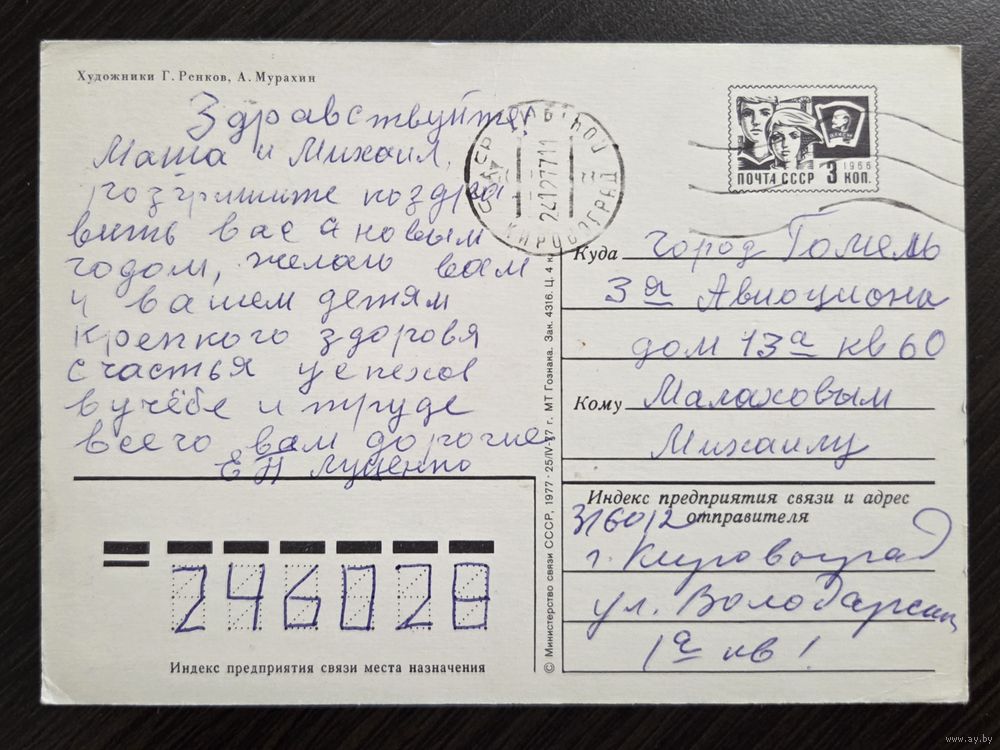 Художники Г. Ренков, А. Мурахин
Здравствуйте
Маша и Михаил,
розришите поздра
вить вас с новым
годом, желаю вам
и вашем детям
крепкого здоровя
счастья успехов
в учёбе и труде
всего вам дорогие
ЕП Луценко
СССР
24127711
КИРОВОГРАД
ВЛКСМ
1966
ПОЧТА СССР 3 КОП.
Куда город Гомель
3я Авиоциона
дом 13а кв 60
Кому Малаховым
Михаилу
Индекс предприятия связи и адрес
отправителя
316012
г. Кировоград
ул. Володарски
1а кв 1
246028
Индекс предприятия связи места назначения
© Министерство связи СССР, 1977 · 25/IV-77 г. МТ Гознака. Зак. 4316. Ц. 4 к.
www.ay.by